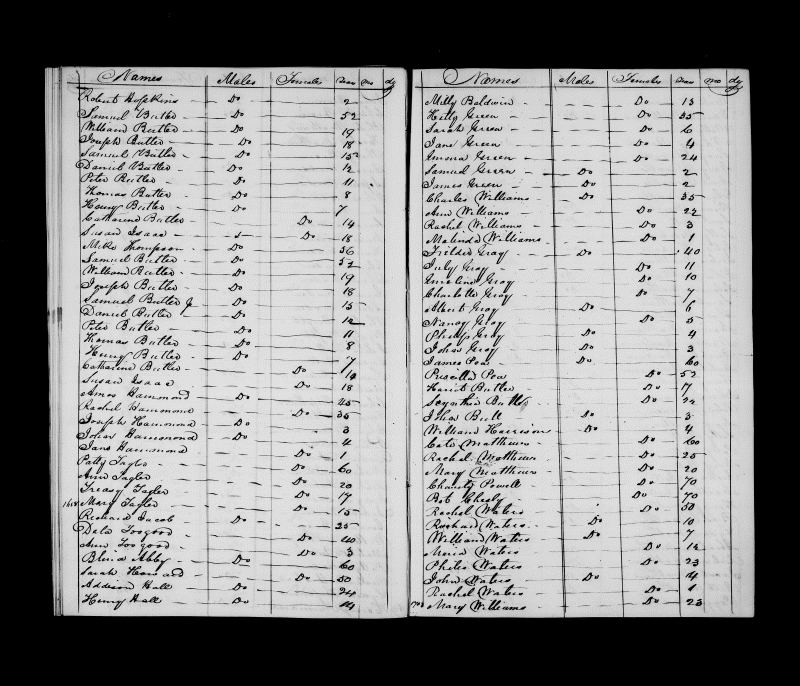 Names Males Females Years mo dy
Robert Hopkins Do 2
Samuel Butler Do 52
William Butler Do 19
Joseph Butler Do 18
Samuel Butler Do 15
Daniel Butler Do 12
Peter Butler Do 11
Thomas Butler Do 8
Henry Butler Do 7
Catharine Butler Do 14
Susan Isaac Do 18
Mike Thompson Do 36
Samuel Butler Do 52
William Butler Do 19
Joseph Butler Do 18
Samuel Butler J Do 15
Daniel Butler Do 12
Peter Butler Do 11
Thomas Butler Do 8
Henry Butler Do 7
Catharine Butler Do 14
Susan Isaac Do 18
Amos Hammond Do 45
Rachel Hammond Do 35
Joseph Hammond Do 3
John Hammond Do 4
Jane Hammond Do 1
Patty Tayler Do 60
Ann Tayler Do 20
Treasy Tayler Do 17
Mary Tayler Do 15
Richard Jacob Do 25
Dala Toogood Do 40
Ann Toogood Do 3
Abby Do 60
Sarah Do 50
Addison Hall Do 24
Henry Hall Do 14
Names Males Females Years mo dy
Milly Baldwin Do 13
Hetty Green Do 35
Sarah Green Do 6
Jane Green Do 4
Green Do 24
Samuel Green Do 2
James Green Do 2
Charles Williams Do 35
Ann Williams Do 22
Rachel Williams Do 3
Malinda Williams Do 1
Gray Do 40
July Gray Do 11
Emeline Gray Do 10
Charlotte Gray Do 7
Albert Gray Do 6
Nancy Gray Do 5
Philip Gray Do 4
John Gray Do 3
James Poa Do 60
Priscilla Poa Do 52
Hariot Butler Do 17
Scynthia Butler Do 22
John Butt Do 3
William Harrison Do 4
Cato Matthews Do 60
Rachel Matthews Do 25
Mary Matthews Do 20
Charity Powell Do 70
Bob Do 70
Rachel Waters Do 50
Richard Waters Do 10
William Waters Do 7
Maria Waters Do 12
Philis Waters Do 23
John Waters Do 4
Rachel Waters Do 1
Mary Williams Do 23